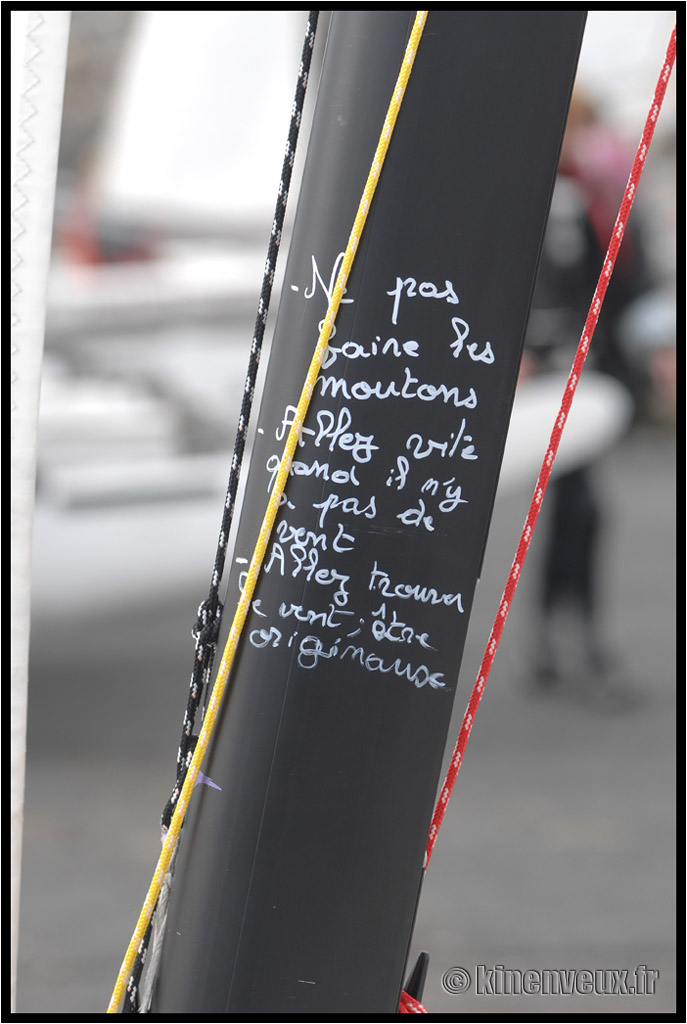 - Ne pas
faire les
moutons
- Allez vite
quand il n'y
a pas de
vent
- Allez trouver
le vent ; être
originaux
© kinenveux.fr